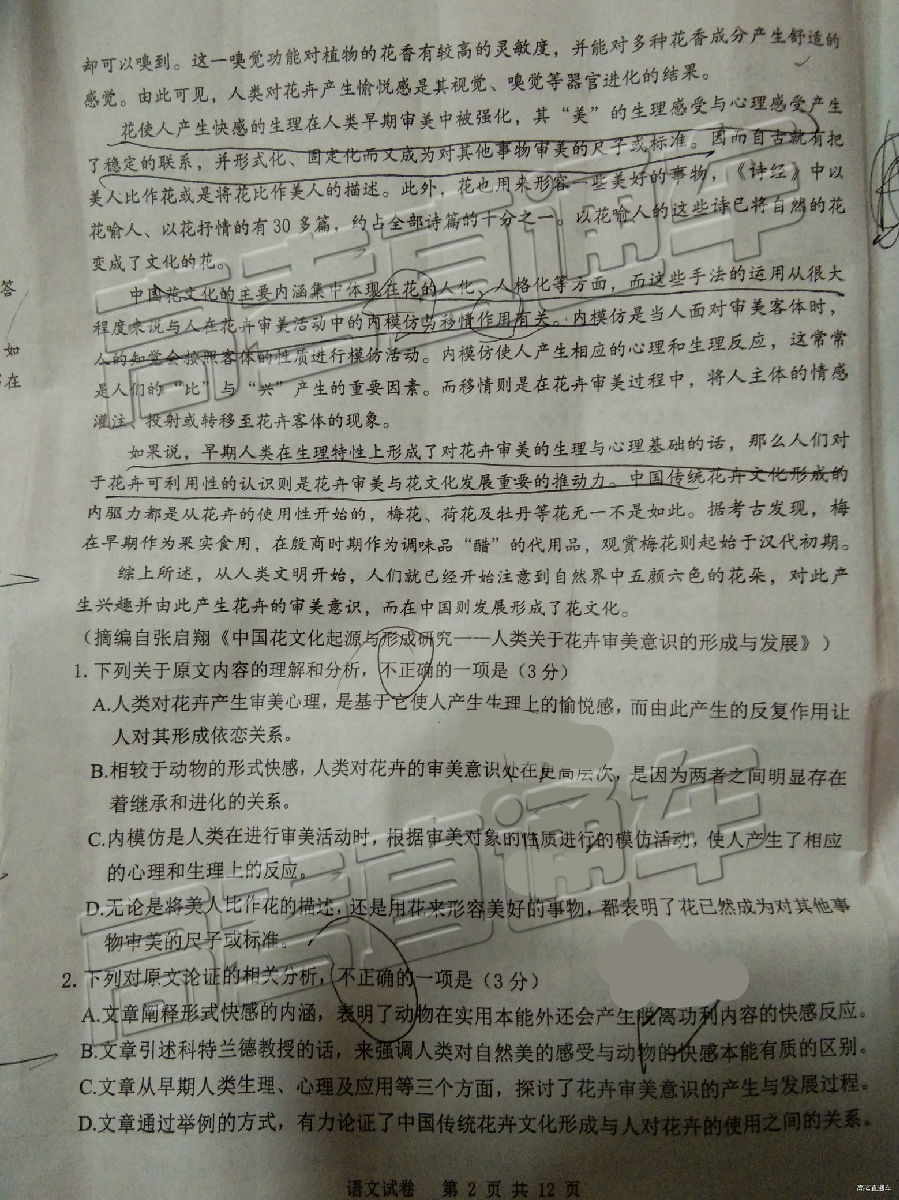 却可以嗅到。这一嗅觉功能对植物的花香有较高的灵敏度，并能对多种花香成分产生舒适的
感觉。由此可见，人类对花卉产生愉悦感是其视觉、嗅觉等器官进化的结果。
花使人产生快感的生理在人类早期审美中被强化，其“美”的生理感受与心理感受产生
了稳定的联系，并形式化、固定化而又成为对其他事物审美的尺子或标准。因而自古就有把
美人比作花或是将花比作美人的描述。此外，花也用来形容一些美好的事物，《诗经》中以
花喻人、以花抒情的有30多篇，约占全部诗篇的十分之一。以花喻人的这些诗已将自然的花
变成了文化的花。
中国花文化的主要内涵集中体现在花的人化、人格化等方面，而这些手法的运用从很大
程度来说与人在花卉审美活动中的内模仿与移情作用有关。内模仿是当人面对审美客体时，
人的知觉会按照客体的性质进行模仿活动。内模仿使人产生相应的心理和生理反应，这常常
是人们的“比”与“兴”产生的重要因素。而移情则是在花卉审美过程中，将人主体的情感
灌注、投射或转移至花卉客体的现象。
如果说，早期人类在生理特性上形成了对花卉审美的生理与心理基础的话，那么人们对
于花卉可利用性的认识则是花卉审美与花文化发展重要的推动力。中国传统花卉文化形成的
内驱力都是从花卉的使用性开始的，梅花、荷花及牡丹等花无一不是如此。据考古发现，梅
在早期作为果实食用，在殷商时期作为调味品“醋”的代用品，观赏梅花则起始于汉代初期。
综上所述，从人类文明开始，人们就已经开始注意到自然界中五颜六色的花朵，对此产
生兴趣并由此产生花卉的审美意识，而在中国则发展形成了花文化。
（摘编自张启翔《中国花文化起源与形成研究——人类关于花卉审美意识的形成与发展》）
1.下列关于原文内容的理解和分析，不正确的一项是（3分）
A.人类对花卉产生审美心理，是基于它使人产生生理上的愉悦感，而由此产生的反复作用让
人对其形成依恋关系。
B.相较于动物的形式快感，人类对花卉的审美意识处在更高层次，是因为两者之间明显存在
着继承和进化的关系。
C.内模仿是人类在进行审美活动时，根据审美对象的性质进行的模仿活动，使人产生了相应
的心理和生理上的反应。
D.无论是将美人比作花的描述，还是用花来形容美好的事物，都表明了花已然成为对其他事
物审美的尺子或标准。
2.下列对原文论证的相关分析，不正确的一项是（3分）
A.文章阐释形式快感的内涵，表明了动物在实用本能外还会产生脱离功利内容的快感反应。
B.文章引述科特兰德教授的话，来强调人类对自然美的感受与动物的快感本能有质的区别。
C.文章从早期人类生理、心理及应用等三个方面，探讨了花卉审美意识的产生与发展过程。
D.文章通过举例的方式，有力论证了中国传统花卉文化形成与人对花卉的使用之间的关系。
语文试卷 第2页共12页
答
如
在
高考直通车
高考直通车
高考直通车